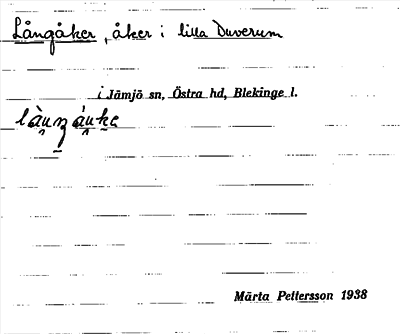 Långåker, åker i lilla Duverum
i Jämjö sn, Östra hd, Blekinge l.
Märta Pettersson 1938